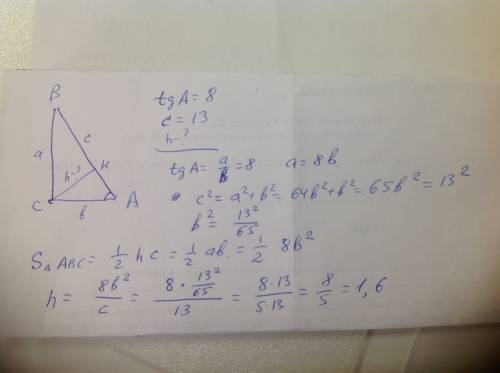 B
tg A = 8
c = 13
h - ?
a
c
h-?
H
C
b
A
tg A = a/b = 8 a = 8b
c² = a² + b² = 64b² + b² = 65b² = 13²
b² = 13²/65
S△ABC = 1/2 h c = 1/2 ab. = 1/2 8b²
h = 8b²/c = (8 · 13²/65)/13 = 8·13/5·13 = 8/5 = 1,6